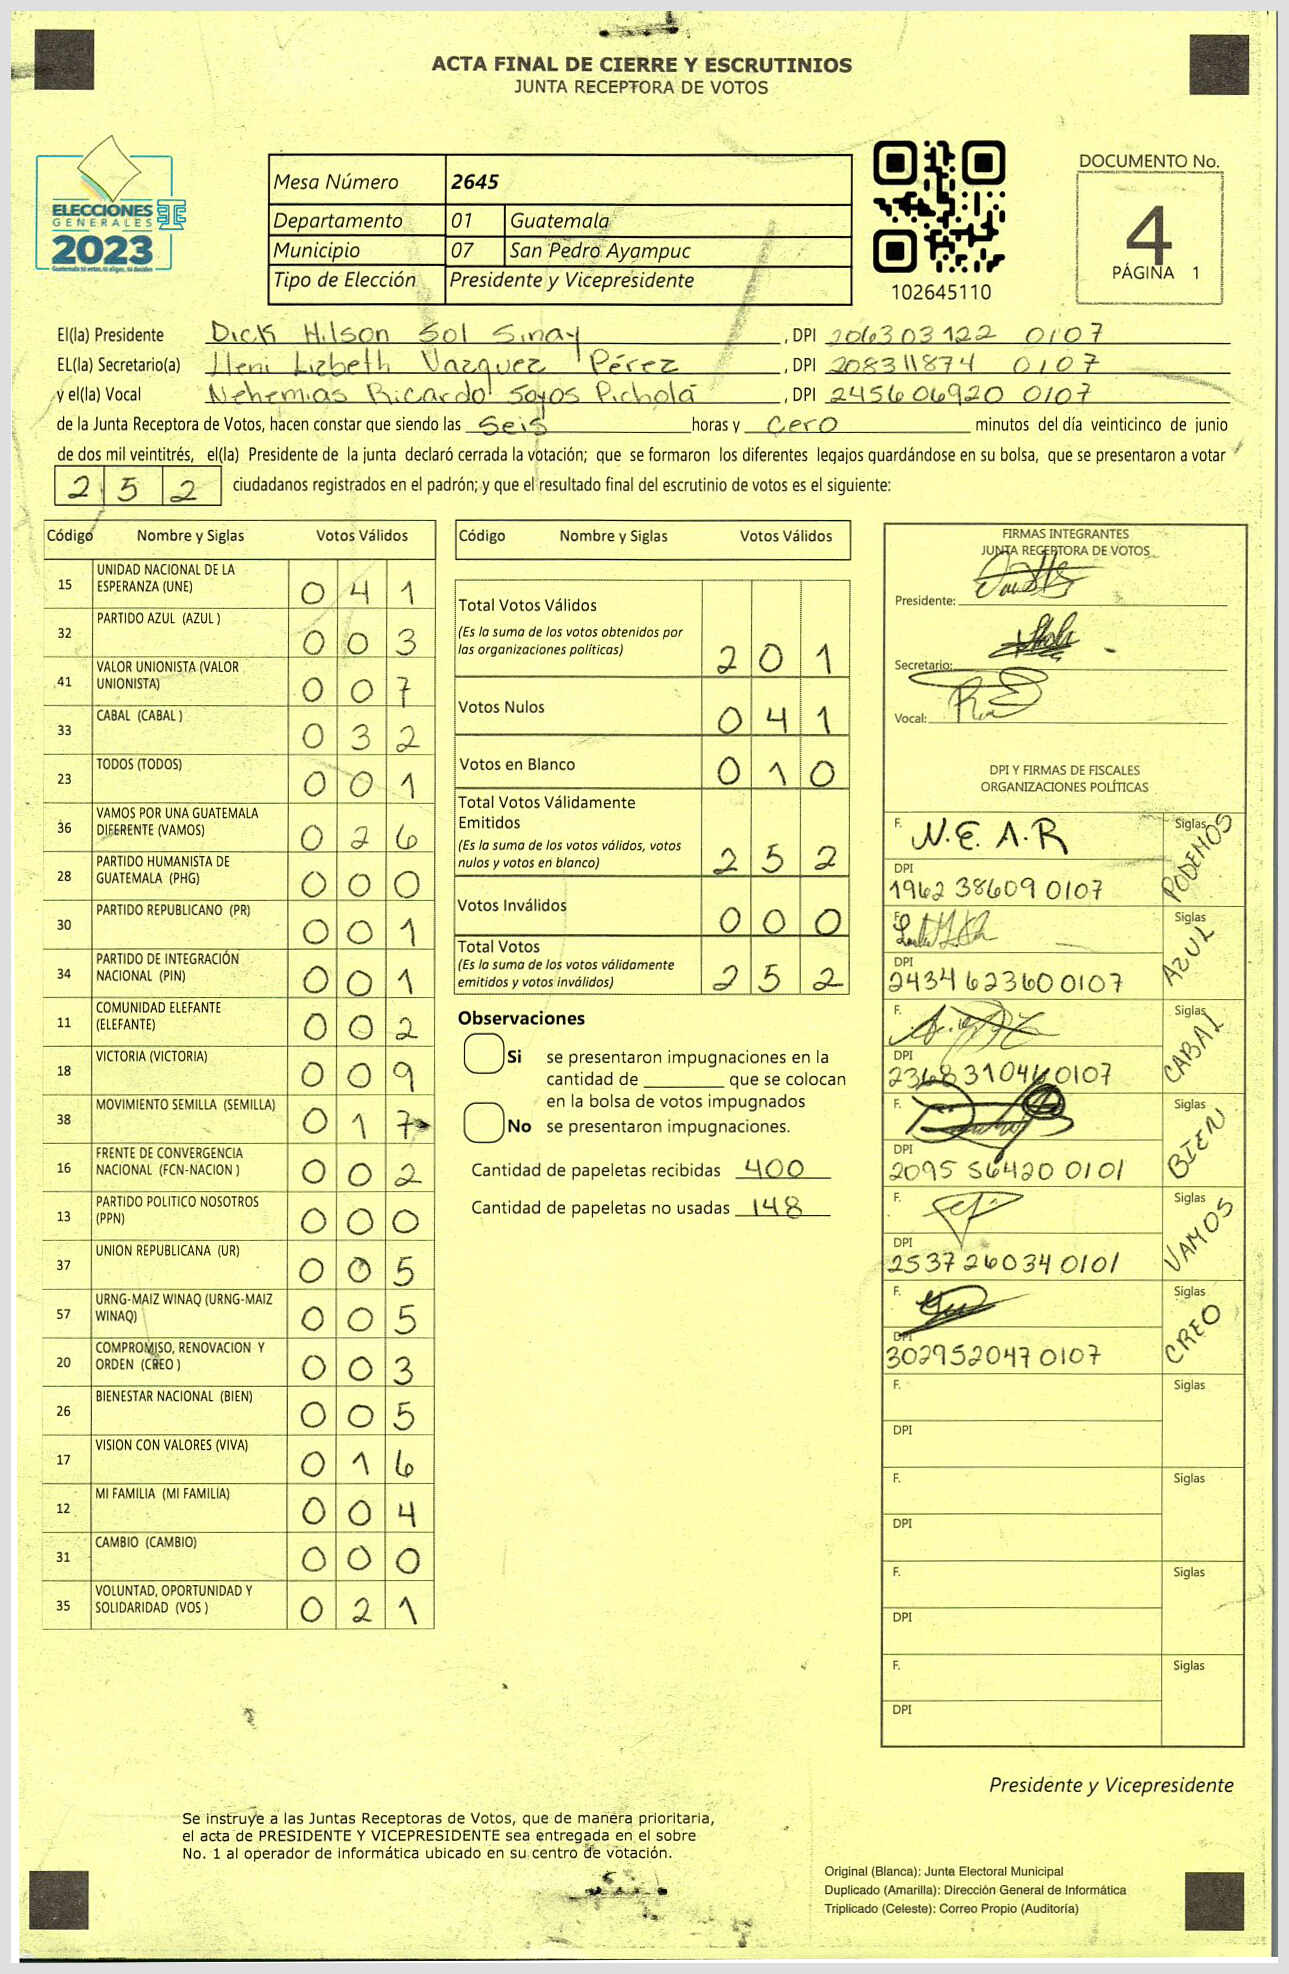 ACTA FINAL DE CIERRE Y ESCRUTINIOS
JUNTA RECEPTORA DE VOTOS
ELECCIONES
GENERALES
2023
Mesa Número 2645
Departamento 01 Guatemala
Municipio 07 San Pedro Ayampuc
Tipo de Elección Presidente y Vicepresidente
102645110
DOCUMENTO No.
4
PÁGINA 1
El(la) Presidente Dick Hilson Sol Sinay, DPI 206303122 0107
EL(la) Secretario(a) Heni Lizbeth Vazquez Pérez, DPI 208311874 0107
y el(la) Vocal Nehemias Ricardo Soyos Picholá, DPI 245606920 0107
de la Junta Receptora de Votos, hacen constar que siendo las Seis horas y Cero minutos del día veinticinco de junio
de dos mil veintitrés, el(la) Presidente de la junta declaró cerrada la votación; que se formaron los diferentes legajos guardándose en su bolsa, que se presentaron a votar
2 5 2 ciudadanos registrados en el padrón; y que el resultado final del escrutinio de votos es el siguiente:
Código Nombre y Siglas Votos Válidos
15 UNIDAD NACIONAL DE LA
ESPERANZA (UNE) 0 4 1
32 PARTIDO AZUL (AZUL ) 0 0 3
41 VALOR UNIONISTA (VALOR
UNIONISTA) 0 0 7
33 CABAL (CABAL ) 0 3 2
23 TODOS (TODOS) 0 0 1
36 VAMOS POR UNA GUATEMALA
DIFERENTE (VAMOS) 0 2 6
28 PARTIDO HUMANISTA DE
GUATEMALA (PHG) 0 0 0
30 PARTIDO REPUBLICANO (PR) 0 0 1
34 PARTIDO DE INTEGRACIÓN
NACIONAL (PIN) 0 0 1
11 COMUNIDAD ELEFANTE
(ELEFANTE) 0 0 2
18 VICTORIA (VICTORIA) 0 0 9
38 MOVIMIENTO SEMILLA (SEMILLA) 0 1 7
16 FRENTE DE CONVERGENCIA
NACIONAL (FCN-NACION ) 0 0 2
13 PARTIDO POLITICO NOSOTROS
(PPN) 0 0 0
37 UNION REPUBLICANA (UR) 0 0 5
57 URNG-MAIZ WINAQ (URNG-MAIZ
WINAQ) 0 0 5
20 COMPROMISO, RENOVACION Y
ORDEN (CREO ) 0 0 3
26 BIENESTAR NACIONAL (BIEN) 0 0 5
17 VISION CON VALORES (VIVA) 0 1 6
12 MI FAMILIA (MI FAMILIA) 0 0 4
31 CAMBIO (CAMBIO) 0 0 0
35 VOLUNTAD, OPORTUNIDAD Y
SOLIDARIDAD (VOS ) 0 2 1
Código Nombre y Siglas Votos Válidos
Total Votos Válidos
(Es la suma de los votos obtenidos por
las organizaciones políticas) 2 0 1
Votos Nulos 0 4 1
Votos en Blanco 0 1 0
Total Votos Válidamente
Emitidos
(Es la suma de los votos válidos, votos
nulos y votos en blanco) 2 5 2
Votos Inválidos 0 0 0
Total Votos
(Es la suma de los votos válidamente
emitidos y votos inválidos) 2 5 2
Observaciones
Si se presentaron impugnaciones en la
cantidad de ________ que se colocan
en la bolsa de votos impugnados
No se presentaron impugnaciones.
Cantidad de papeletas recibidas 400
Cantidad de papeletas no usadas 148
FIRMAS INTEGRANTES
JUNTA RECEPTORA DE VOTOS
Presidente:
Secretario:
Vocal:
DPI Y FIRMAS DE FISCALES
ORGANIZACIONES POLÍTICAS
F. N.E.A.R Siglas PODEMOS
DPI
1962 38609 0107
F. Siglas AZUL
DPI
2434 62360 0107
F. Siglas CABAL
DPI
2368 31046 0107
F. Siglas BIEN
DPI
2095 56420 0101
F. Siglas VAMOS
DPI
2537 26034 0101
F. Siglas CREO
DPI
302952047 0107
F. Siglas
DPI
F. Siglas
DPI
F. Siglas
DPI
F. Siglas
DPI
Presidente y Vicepresidente
Se instruye a las Juntas Receptoras de Votos, que de manera prioritaria,
el acta de PRESIDENTE Y VICEPRESIDENTE sea entregada en el sobre
No. 1 al operador de informática ubicado en su centro de votación.
Original (Blanca): Junta Electoral Municipal
Duplicado (Amarilla): Dirección General de Informática
Triplicado (Celeste): Correo Propio (Auditoría)